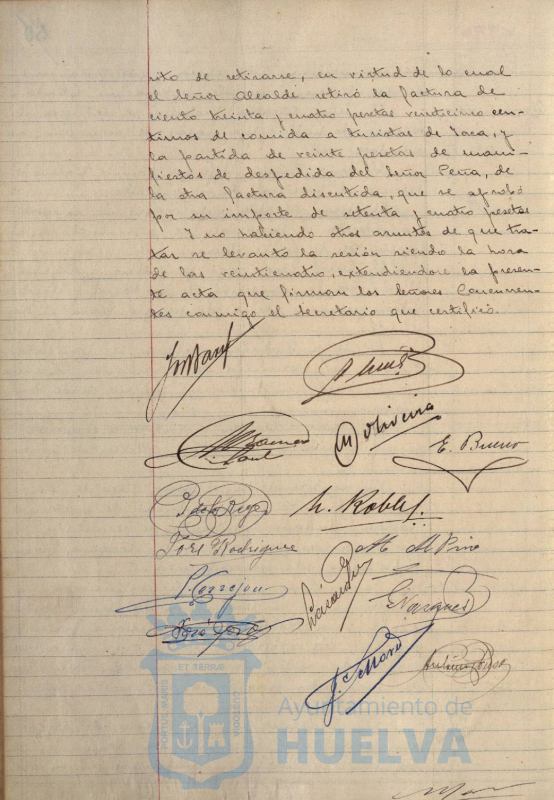 rito de retirarse, en virtud de lo cual
el Señor Alcalde retiró la factura de
ciento treinta y cuatro pesetas veinticinco cen-
timos de comida a turistas de Jaca, y
la partida de veinte pesetas de mani-
fiestos de despedida del Señor Peña, de
la otra factura discutida, que se aprobó
por su importe de setenta y cuatro pesetas
Y no habiendo otros asuntos de que tra-
tar se levanto la sesión siendo la hora
de las veinticuatro, extendiendose la presen-
te acta que firman los Señores Concurren-
tes conmigo el Secretario que certificó.
M Oliveira
E. Bueno
h. Robles.
José Rodriguez
M Pino
P. Correjon
G Vazquez
ET TERRAE
PORTUS MARIS
CUSTODIA
Ayuntamiento de
HUELVA